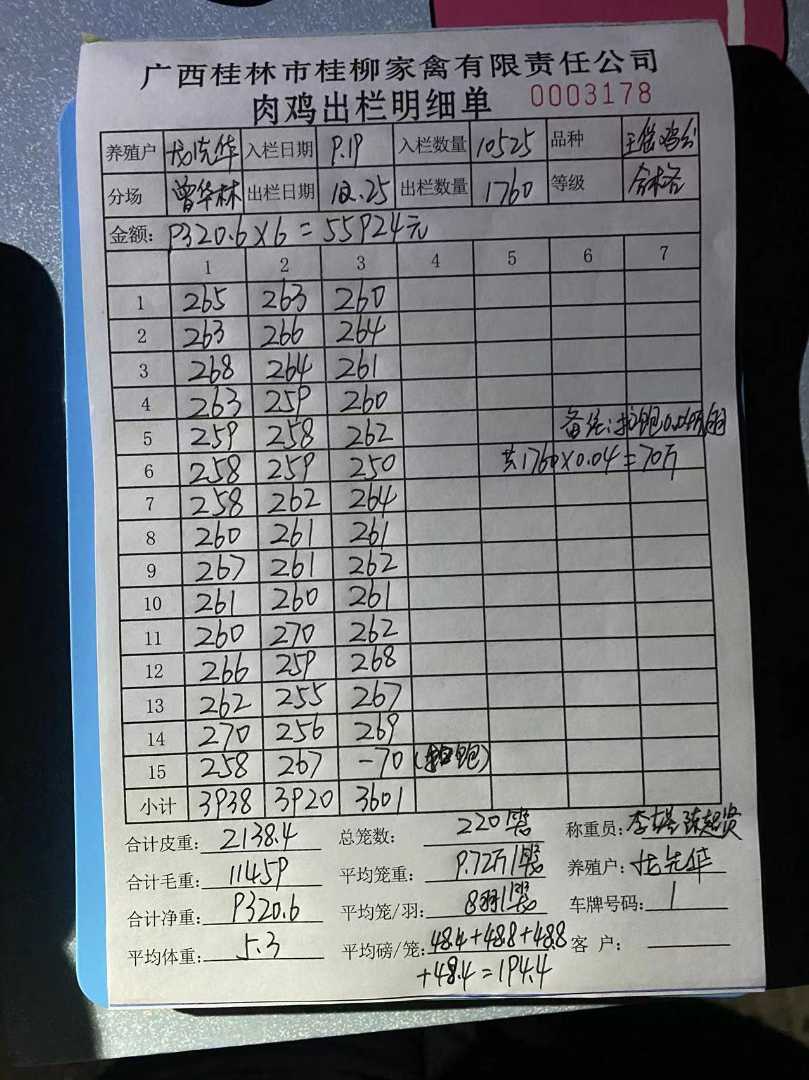 广西桂林市桂柳家禽有限责任公司
肉鸡出栏明细单 0003178
养殖户 龙先华 入栏日期 9.19 入栏数量 10525 品种
分场 曾华林 出栏日期 12.25 出栏数量 1760 等级 合格
金额: 9320.6×6=55924元
1 2 3 4 5 6 7
1 265 263 260
2 263 266 264
3 268 264 261
4 263 259 260
5 259 258 262 备注:
6 258 259 250 共1760×0.04=70斤
7 258 262 264
8 260 261 261
9 267 261 262
10 261 260 261
11 260 270 262
12 266 259 268
13 262 255 267
14 270 256 269
15 258 267 -70
小计 3938 3920 3601
合计皮重: 2138.4 总笼数: 220 称重员:
合计毛重: 11459 平均笼重: 9.72斤/ 养殖户: 龙先华
合计净重: 9320.6 平均笼/羽: 8羽/ 车牌号码: 1
平均体重: 5.3 平均磅/笼: 48.4+48.8+48.8 客户:
+48.4=194.4